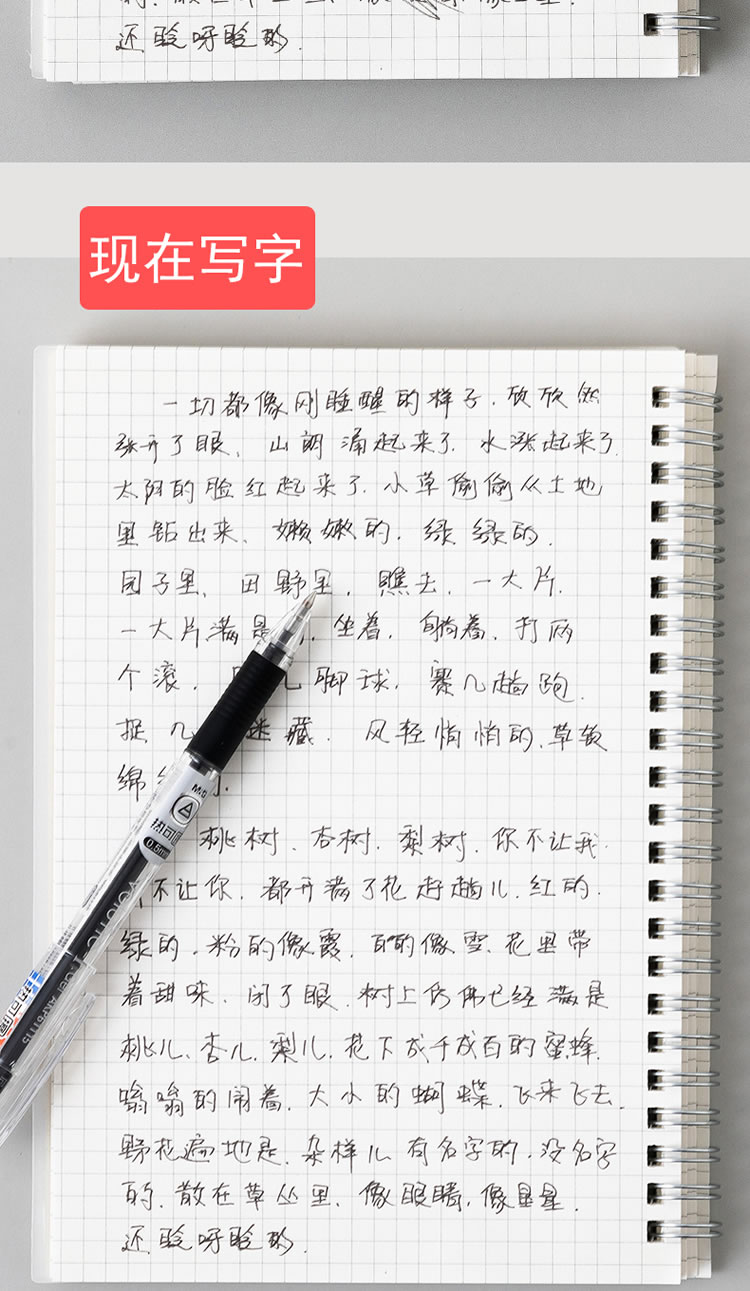 的.散在草丛里.像 像星星.
还眨呀眨的.
现在写字
一切都像刚睡醒的样子.欣欣然
张开了眼、山朗涌起来了.水涨起来了.
太阳的脸红起来了.小草偷偷从土地
里钻出来、嫩嫩的.绿绿的.
园子里、田野里.瞧去.一大片.
一大片满是 .坐着.躺着.打两
个滚. 几脚球.赛几趟跑.
捉几 迷藏.风轻悄悄的.草软
绵
桃树、杏树.梨树.你不让我.
不让你.都开满了花赶趟儿.红的.
绿的.粉的像霞.白的像雪.花里带
着甜味.闭了眼.树上仿佛已经满是
桃儿.杏儿.梨儿.花下成千成百的蜜蜂.
嗡嗡的闹着.大小的蝴蝶.飞来飞去.
野花遍地是.杂样儿.有名字的.没名字
的.散在草丛里.像眼睛.像星星.
还眨呀眨的.
M&G
热可
0.5mm
GEL AKP61115